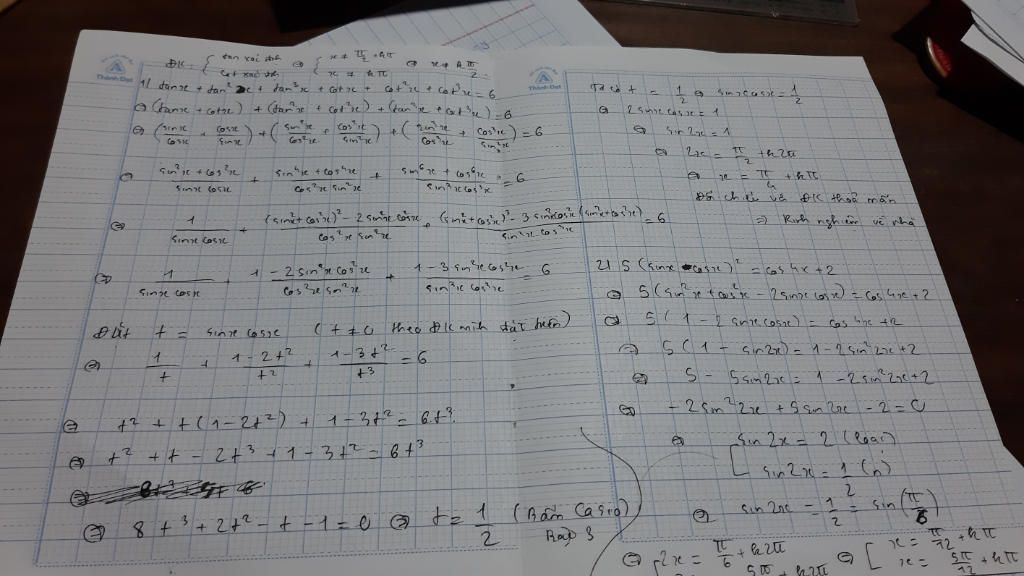 ĐK: { tan xác định ⇔ { x ≠ π/2 + kπ ⇔ x ≠ kπ/2
{ cot xác định { x ≠ kπ
Thành Đạt
1/ tanx + tan²x + tan³x + cotx + cot²x + cot³x = 6
⇔ (tanx + cotx) + (tan²x + cot²x) + (tan³x + cot³x) = 6
⇔ (sinx/cosx + cosx/sinx) + (sin²x/cos²x + cos²x/sin²x) + (sin³x/cos³x + cos³x/sin³x) = 6
⇔ (sin²x + cos²x)/(sinx cosx) + (sin⁴x + cos⁴x)/(cos²x sin²x) + (sin⁶x + cos⁶x)/(sin³x cos³x) = 6
⇔ 1/(sinx cosx) + ((sin²x + cos²x)² - 2sin²x cos²x)/(cos²x sin²x) + ((sin²x + cos²x)³ - 3sin²x cos²x (sin²x + cos²x))/(sin³x cos³x) = 6
⇔ 1/(sinx cosx) + (1 - 2sin²x cos²x)/(cos²x sin²x) + (1 - 3sin²x cos²x)/(sin³x cos³x) = 6
Đặt t = sinx cosx (t ≠ 0 theo ĐK mình đặt trên)
⇔ 1/t + (1 - 2t²)/t² + (1 - 3t²)/t³ = 6
⇔ t² + t(1 - 2t²) + 1 - 3t² = 6t³
⇔ t² + t - 2t³ + 1 - 3t² = 6t³
⇔ 8t³ + 2t² - t - 1 = 0 ⇔ t = 1/2 (Bấm Casio)
Bậc 3
Thành Đạt
Ta có t = 1/2 ⇔ sinx cosx = 1/2
⇔ 2sinx cosx = 1
⇔ sin2x = 1
⇔ 2x = π/2 + k2π
⇔ x = π/4 + kπ
Đối chiếu với ĐK thoả mãn
⇒ Rinh nghiệm về nhà
2/ 5(sinx - cosx)² = cos4x + 2
⇔ 5(sin²x + cos²x - 2sinx cosx) = cos4x + 2
⇔ 5(1 - 2sinx cosx) = cos4x + 2
⇔ 5(1 - sin2x) = 1 - 2sin²2x + 2
⇔ 5 - 5sin2x = 1 - 2sin²2x + 2
⇔ -2sin²2x + 5sin2x - 2 = 0
⇔ [ sin2x = 2 (loại)
[ sin2x = 1/2 (n)
⇔ sin2x = 1/2 = sin(π/6)
⇔ [ 2x = π/6 + k2π ⇔ [ x = π/12 + kπ
5π + k2π [ x = 5π/12 + kπ